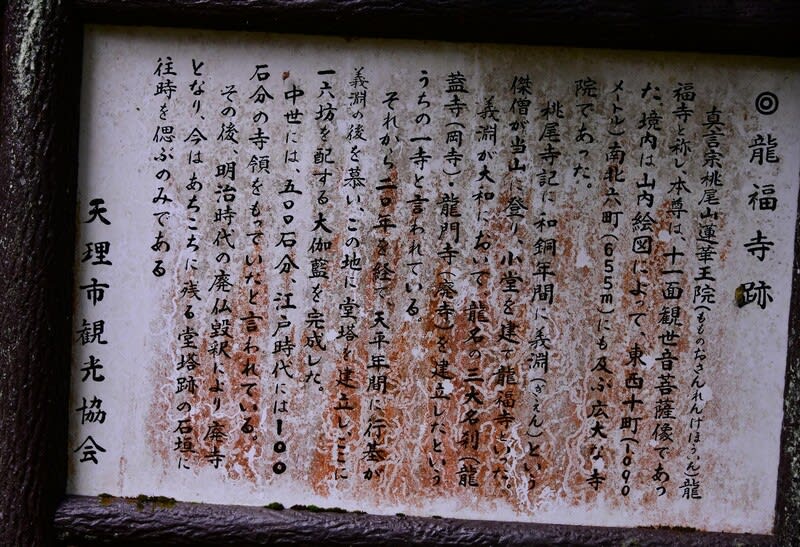 ◎龍福寺跡
真言宗桃尾山蓮華王院(もものおさんれんげほういん)龍
福寺と称し、本尊は、十一面観世音菩薩像であっ
た。境内は山内絵図によって、東西十町(1,090
メートル)南北六町(655m)にも及ぶ広大な寺
院であった。
桃尾寺記に和銅年間に義淵(ぎえん)という
傑僧が当山に登り、小堂を建て龍福寺といた。
義淵が大和において龍名の三大名刹(龍
蓋寺(岡寺)・龍門寺(廃寺)を建立したという
うちの一寺と言われている。
それから二〇年を経て、天平年間に行基が
義淵の後を慕い、この地に堂塔を建立し、ここに
一六坊を配する大伽藍を完成した。
中世には、五〇〇石分、江戸時代には100
石分の寺領をもっていたと言われている。
その後、明治時代の廃仏毀釈により廃寺
となり、今はあちこちに残る堂塔跡の石垣に
往時を偲ぶのみである
天理市観光協会